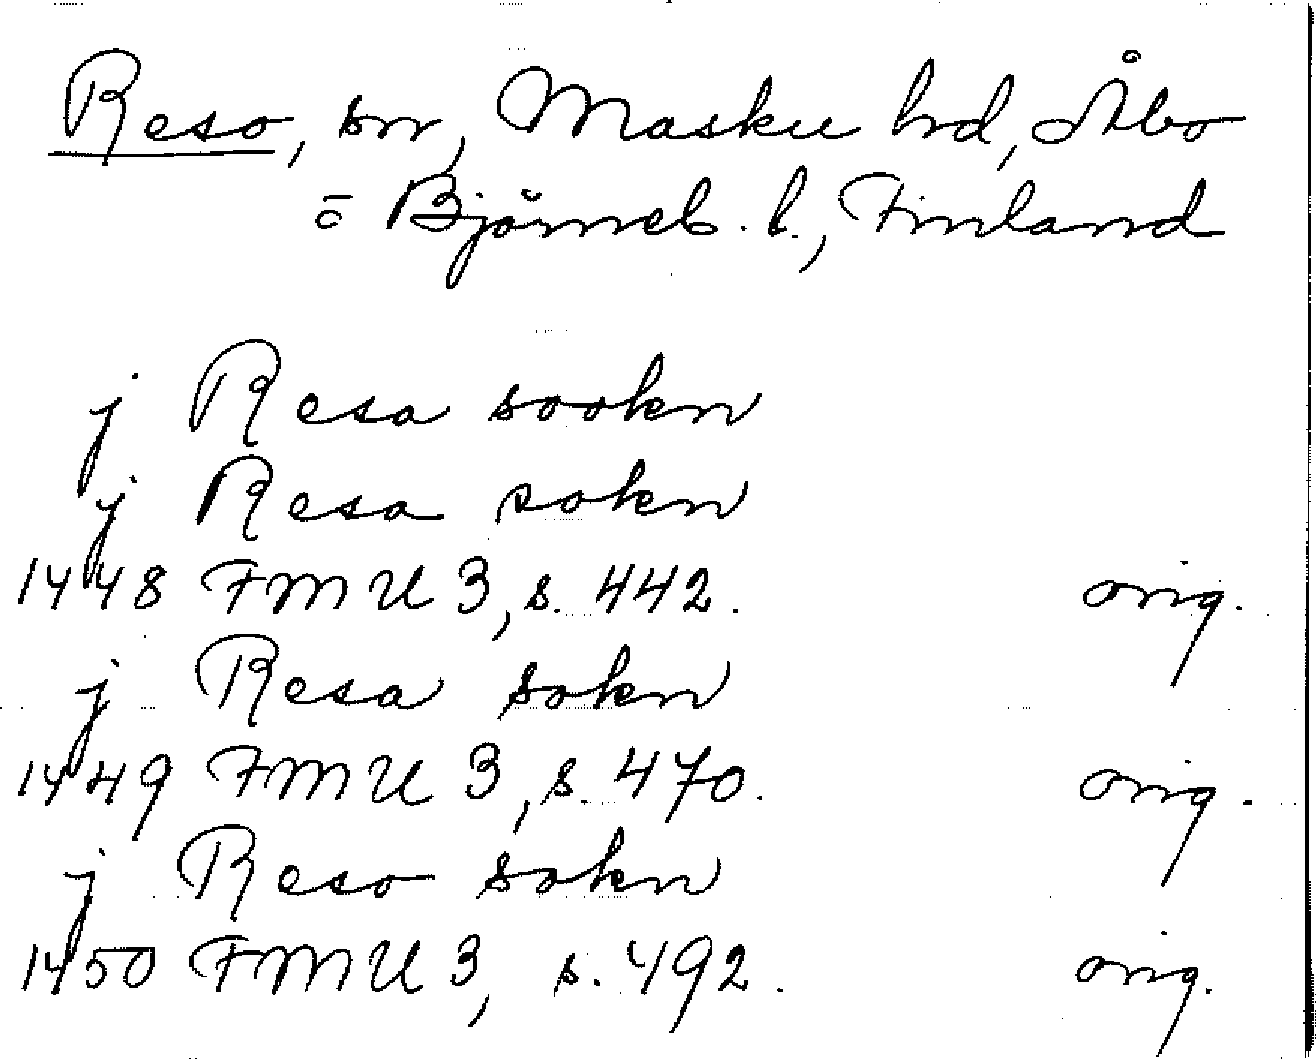 Reso, sn, Masku hd, Åbo
o̅ Björneb. l., Finland
j Resa sookn
j Resa sokn
1448 FMU 3, s. 442. orig.
j Resa sokn
1449 FMU 3, s. 470. orig.
j Reso sokn
1450 FMU 3, s. 492. orig.